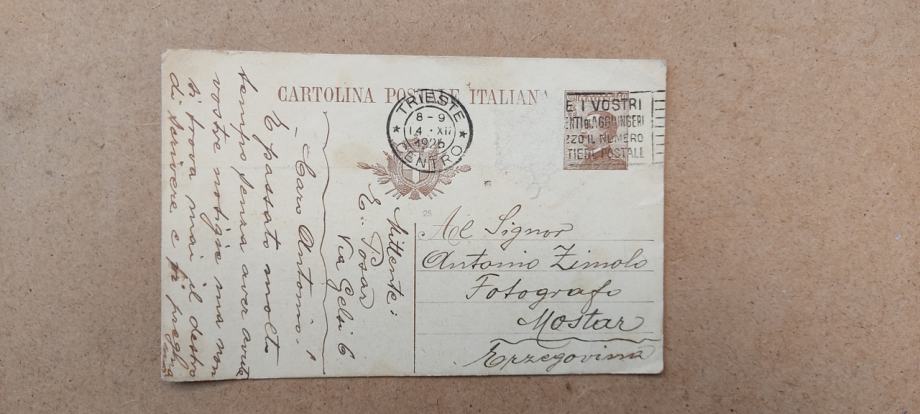 CARTOLINA POSTALE ITALIANA
TRIESTE
8-9
14·XII
1926
CENTRO
E I VOSTRI
ENTI DI AGGIUNGERE
ZZO IL NUMERO
TIERE POSTALE
25
Al Signor
Antonio Zimolo
Fotografo
Mostar
Erzegovina
Mittente:
E. Posar
Via Gelsi 6
Caro Antonio!
È passato molto
tempo senza aver avute
vostre notizie ma non
si trova mai il destro
di scrivere e